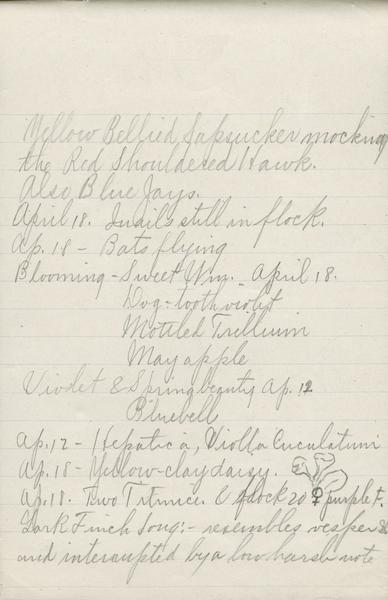 Yellow Bellied Sapsucker mocking
the Red Shouldered Hawk.
Also Blue Jays.
April 18. Quails still in flock.
Ap. 18 - Bats flying
Blooming - Sweet Wm. - April 18.
Dog-tooth violet
Mottled Trillium
May apple
Violet & Spring beauty Ap. 12
Bluebell
Ap. 12 - Hepatica, Viola Cuculatum
Ap. 18 - Yellow-clay daisy.
Ap. 18. Two Titmice. flock 20 ♀ purple F.
Lark Finch song:- resembles vesper S
and interrupted by a low harsh note